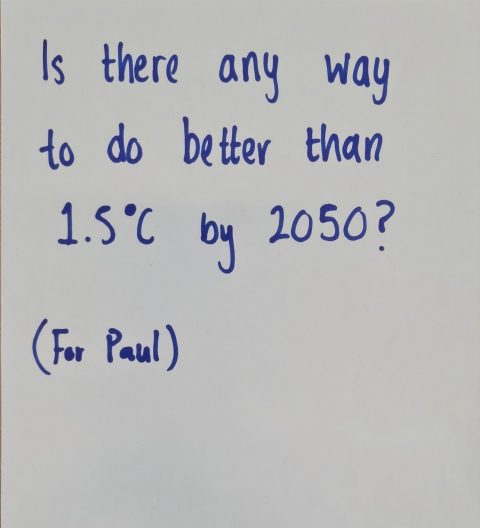 Is there any way
to do better than
1.5°C by 2050?
(For Paul)